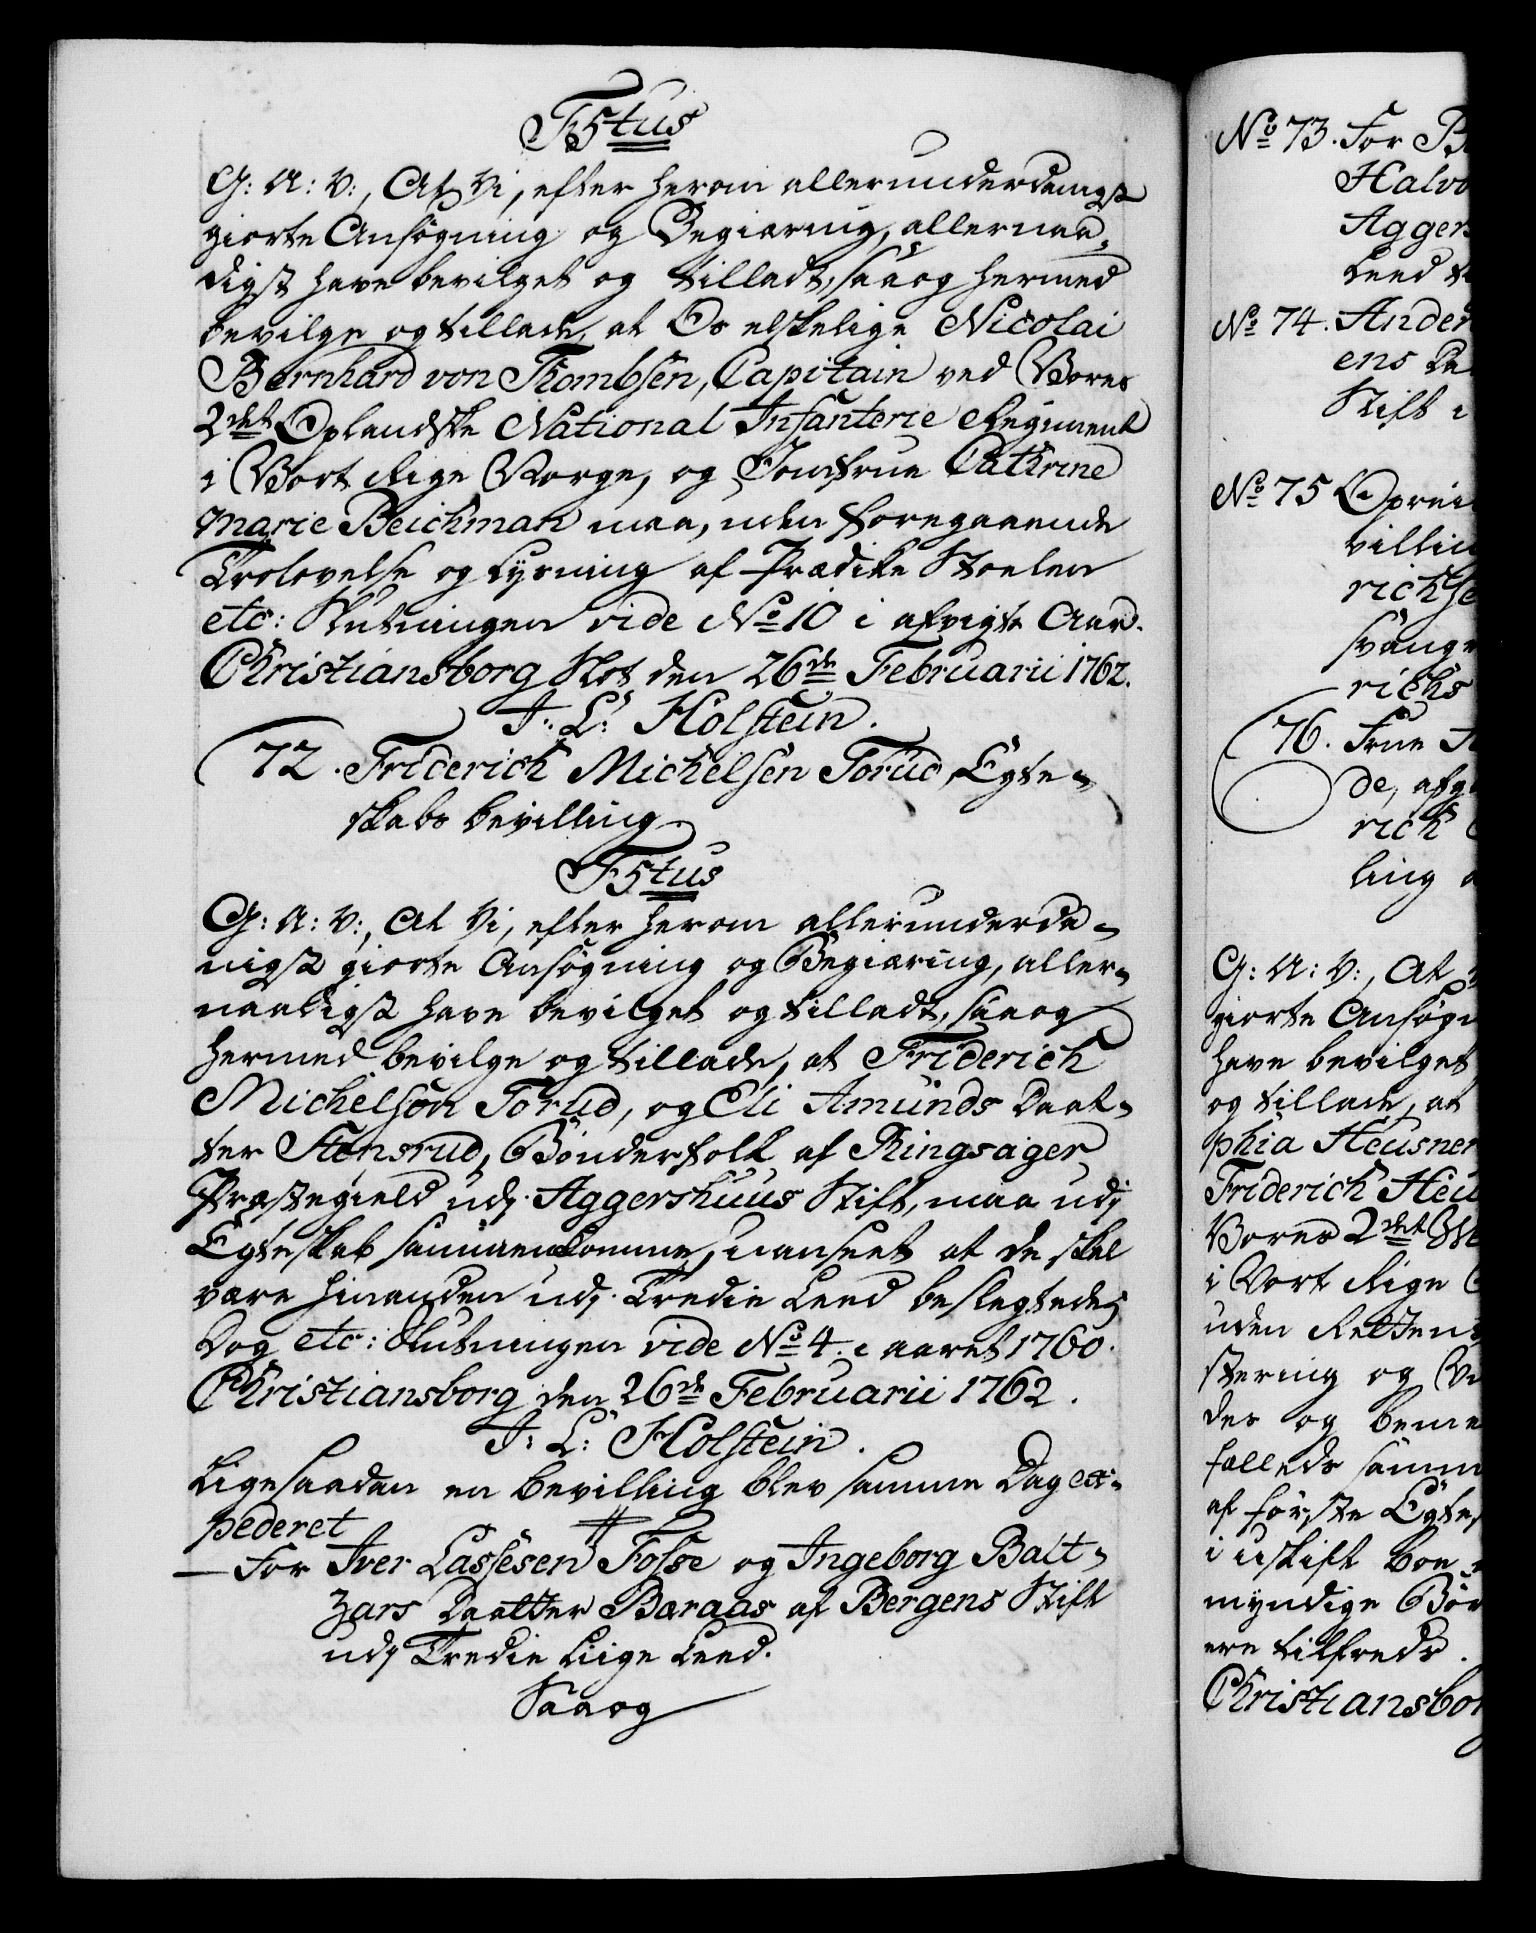 F5tus
G: A: V:, At Vi, efter herom allerunderdanigst
giorte Ansøgning og Begiæring, allernaa-
digst have bevilget og tilladt, saa og hermed
bevilge og tillade, at Os elskelige Nicolai
Bernhard von Thombsen, Capitain ved Vores
2det Oplandske National Infanterie Regiment
i Vort Rige Norge, og Jomfrue Cathrine
Marie Beichman maa, uden foregaaende
Trolovelse og Lysning af Prædike Stoelen
etc: Slutningen vide No 10 i afvigte Aar.
Christiansborg Slot den 26de Februarii 1762.
J: L: Holstein.
72. Friderich Michelsen Torud, Egte-
skabs bevilling
F5tus
G: A: V:, At Vi, efter herom allerunderda-
nigst giorte Ansøgning og Begiæring, aller-
naadigst have bevilget og tilladt, saa og
hermed bevilge og tillade, at Friderich
Michelsøn Torud, og Eli Amunds Daat-
ter Stensrud, Bønderfolk af Ringsager
Præstegield udj Aggershuus Stift, maa udj
Egteskab sammenkomme, uanseet at de skal
være hinanden udj Tredie Leed beslegtede,
Dog etc: Slutningen vide No 4. i aaret 1760.
Christiansborg den 26de Februarii 1762.
J: L: Holstein.
Ligesaadan en bevilling blev samme Dag ex-
pederet
— For Iver Lassesen Fosse og Ingeborg Balt-
zars Daatter Baraas af Bergens Stift
udj Tredie Liige Leed.
Saa og
No 73. For
Halvo
Agger
Leed
No 74. Ander
ens
Stift i
No 75 Oprei
villin
richse
svange
richs
76. Frue
de, afg
rich
ling
G: A: V:, At
giorte Ansøgn
have bevilget
og tillade, at
phia Heusner
Friderich Heu
Vores 2det
i Vort Rige
uden Rettens
stering og
des og beme
fælleds samm
af første Egte
i uskift boe
myndige Bør
ere tilfreds.
Christiansbor